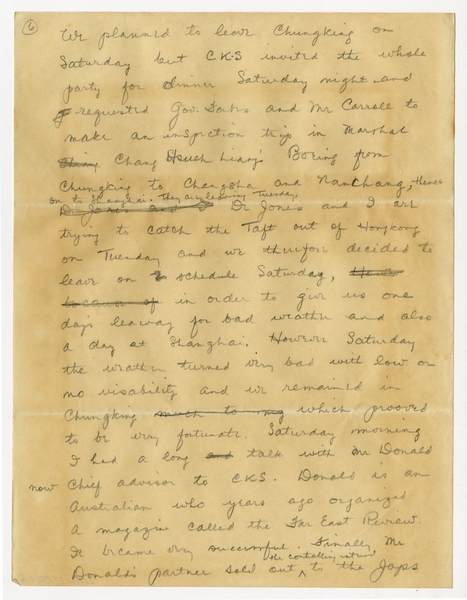 6
We planned to leave Chungking on
Saturday but C.K.S invited the whole
party for dinner Saturday night and
requested Gov. Forbes and Mr Carroll to
make an inspection trip in Marshal
Chang Hsueh Liang's Boeing from
Chungking to Changsha and Nanchang, thence
on to Shanghai. They are leaving Tuesday.
Dr Jones and Dr Jones and I are
trying to catch the Taft out of Hongkong
on Tuesday and we therefore decided to
leave on schedule Saturday,
because of in order to give us one
days leaway for bad weather and also
a day at Shanghai. However Saturday
the weather turned very bad with low or
no visability and we remained in
Chungking much to my which prooved
to be very fortunate. Saturday morning
I had a long and talk with Mr Donald
now Chief advisor to C.K.S. Donald is an
Australian who years ago organized
a magazine called the Far East Review.
It became very successful. Finally Mr
the controlling interest
Donald's partner sold out to the Japs